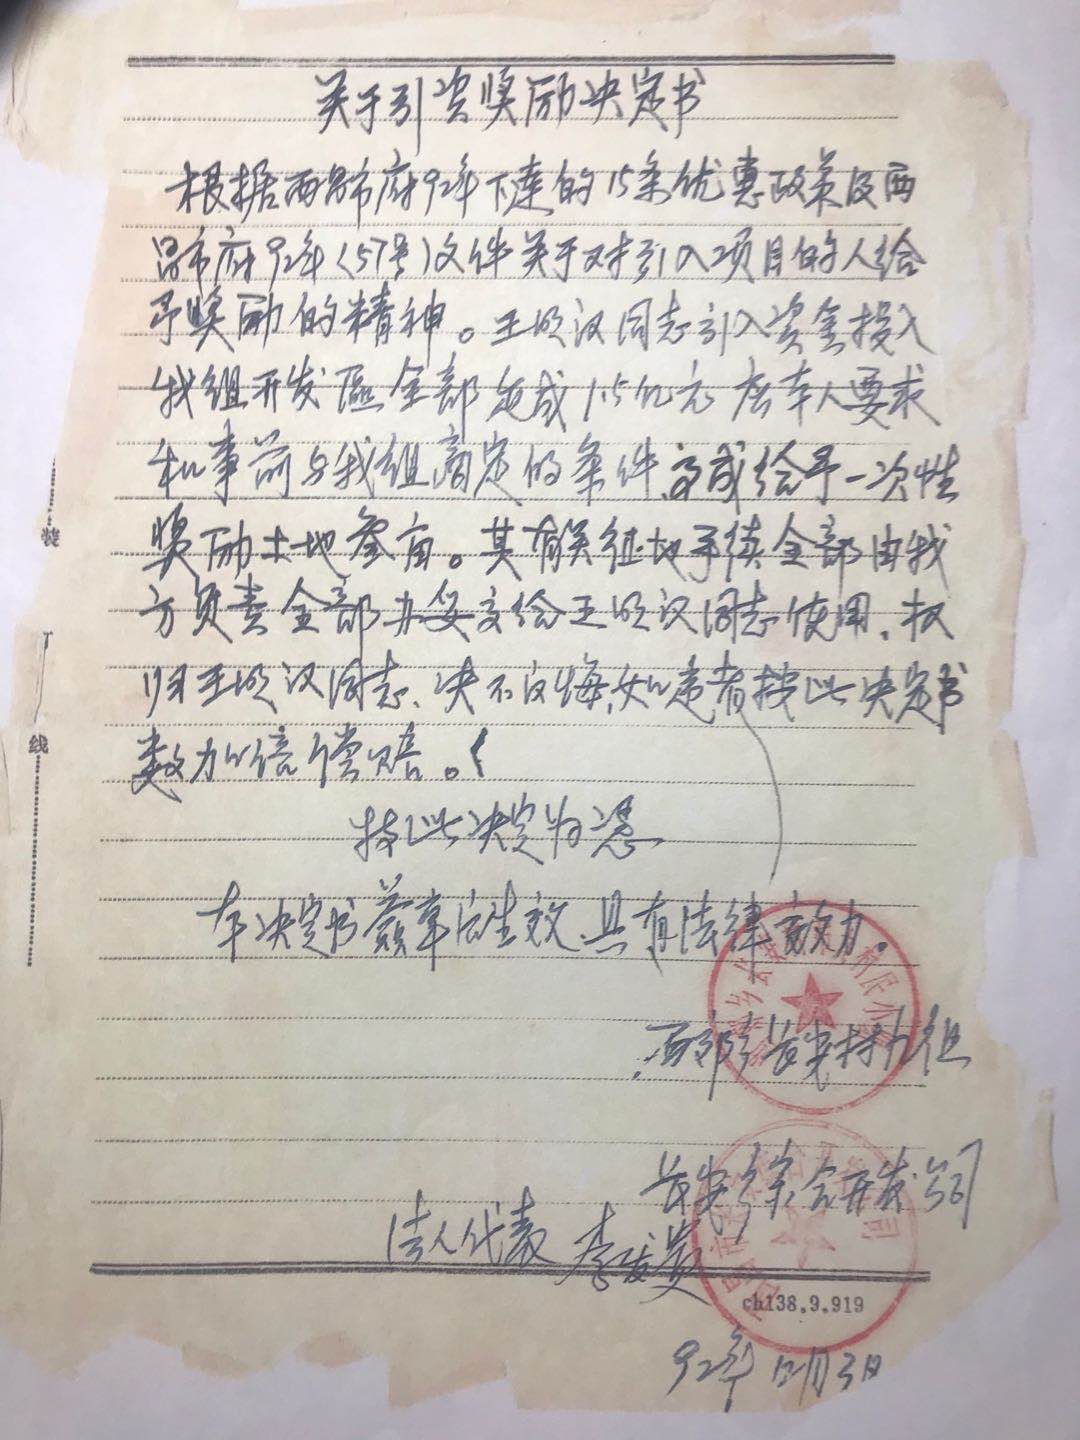 关于引资奖励决定书
根据西昌市府92年下达的15条优惠政策及西
昌市府92年(57号)文件关于对引入项目的人给
予奖励的精神。王明汉同志引入资金投入
我组开发区全部完成1.5亿元 本人要求
和事前与我组商定的条件、 给予一次性
奖励土地叁亩。其有关征地手续全部由我
方负责全部办妥交给王明汉同志使用、权
归王明汉同志、决不反悔,如违者按此决定书
数加倍偿赔。
按此决定为凭
本决定书签章后生效、具有法律效力。
西郊乡长安村九组
长安乡综合开发公司
法人代表 李发贵
ch138.9.919
92年12月3日
装
订
线